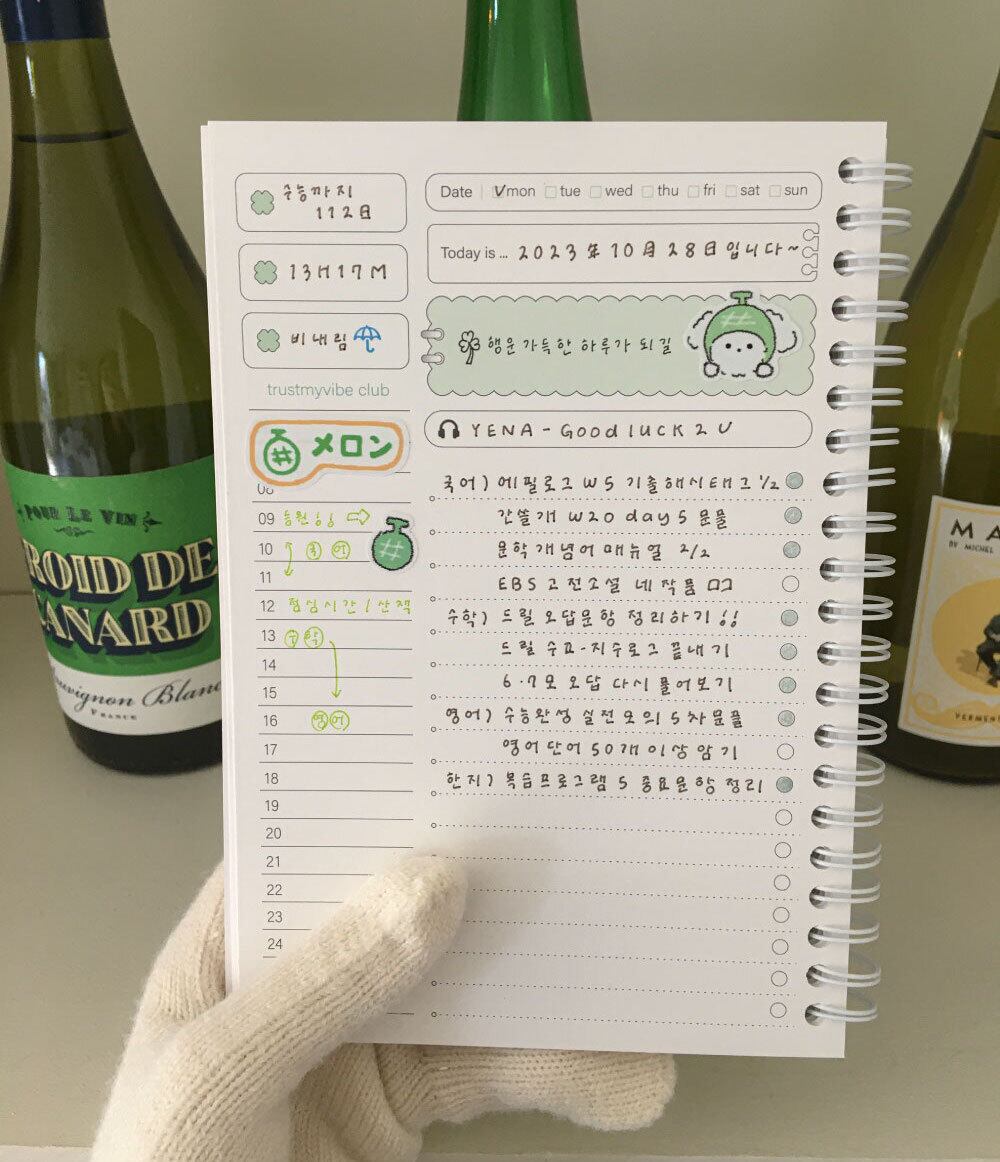 수능까지
112日
13H17M
비내림
trustmyvibe club
メロン
08
09 등원!!
10 국어
11
12 점심시간/산책
13 수학
14
15
16 영어
17
18
19
20
21
22
23
24
Date V mon tue wed thu fri sat sun
Today is ... 2023年10月28日입니다~
행운 가득한 하루가 되길
YENA - Good luck 2 U
국어) 에필로그 W5 기출해시태그 1/2
간쓸개 W20 day5 문풀
문학개념어 매뉴얼 2/2
EBS 고전소설 네 작품
수학) 드릴 오답문항 정리하기!!
드릴 수2·지수로그 끝내기
6·7모 오답 다시 풀어보기
영어) 수능완성 실전모의 5차문풀
영어단어 50개 이상 암기
한지) 복습프로그램 5 중요문항 정리
POUR LE VIN
FROID DE
CANARD
Sauvignon Blanc
FRANCE
MA
BY MICHEL
VERMEN